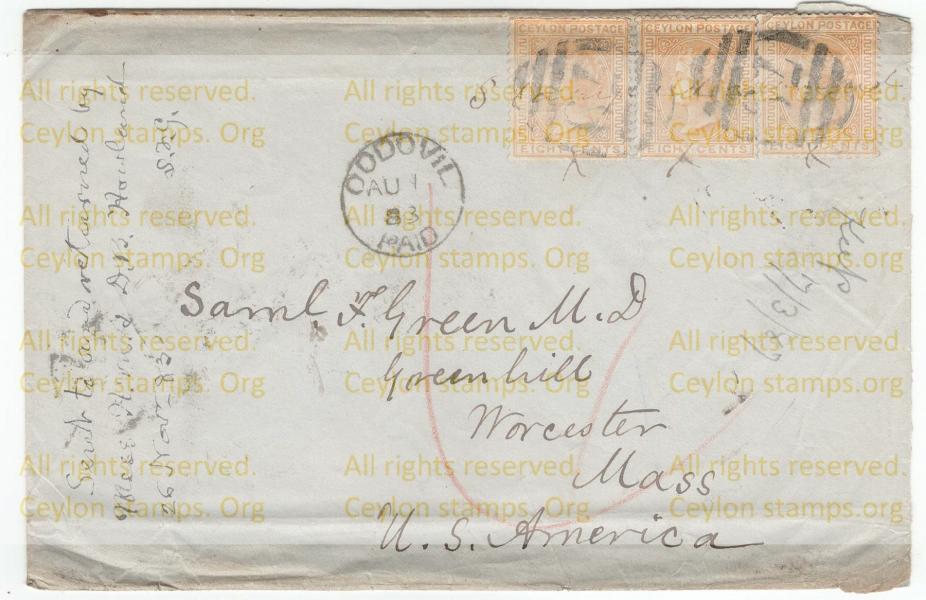 CEYLON POSTAGE CEYLON POSTAGE CEYLON POSTAGE
EIGHT CENTS EIGHT CENTS EIGHT CENTS
OODOVIL
AU 1
83
PAID
Keep
Saml. F. Green M.D
Greenhill
Worcester
Mass
U. S. America
Sent to and returned by
Howland
26 Nov 83
All rights reserved. All rights reserved. All rights reserved.
Ceylon stamps. Org Ceylon stamps. Org Ceylon stamps. Org
All rights reserved. All rights reserved. All rights reserved.
Ceylon stamps. Org Ceylon stamps. Org Ceylon stamps. Org
All rights reserved. All rights reserved. All rights reserved.
Ceylon stamps. Org Ceylon stamps. Org Ceylon stamps. Org
All rights reserved. All rights reserved. All rights reserved.
Ceylon stamps. Org Ceylon stamps. Org Ceylon stamps. Org